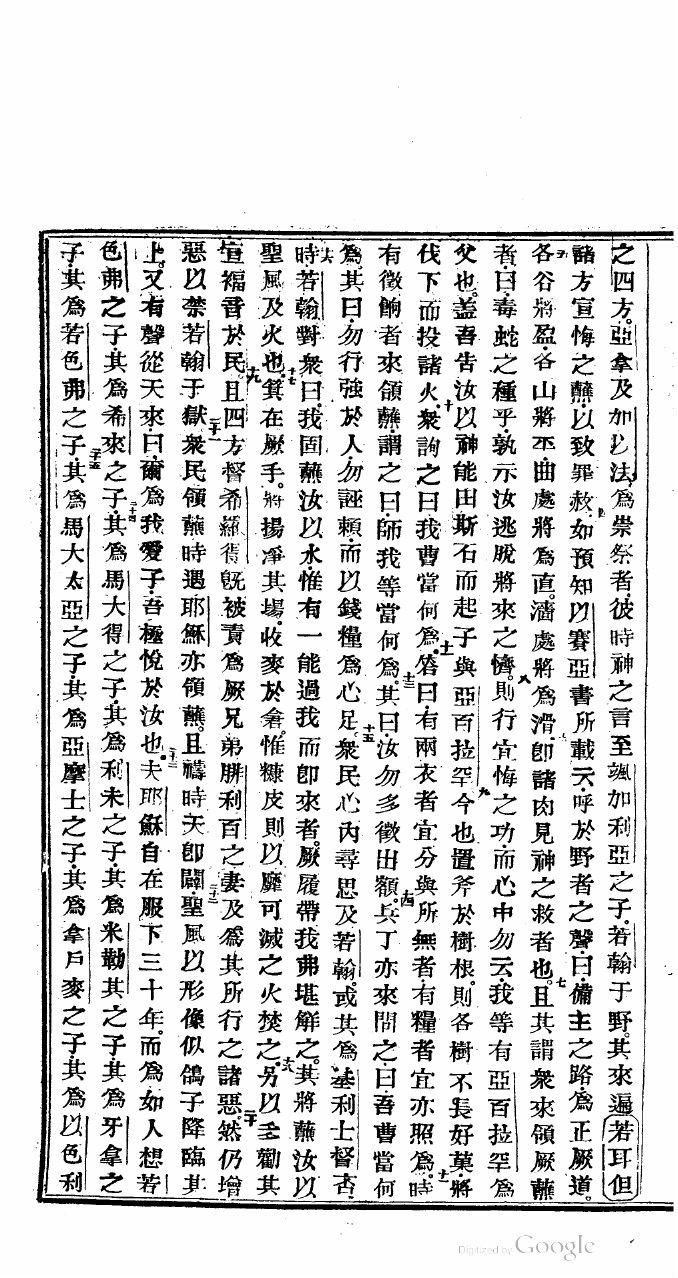 之四方。亞拿及加以法、爲祟祭者、彼時神之言至颯加利亞之子、若翰于野。其來遍若耳但
諸方宣悔之蘸、以致罪赦、四如預知以賽亞書所載云、呼於野者之聲曰、備主之路、爲正厥道。
五各谷將盈、各山將丕、曲處將爲直。濇處將爲滑、六卽諸肉見神之救者也。七且其謂衆來領厥蘸
者、曰毒蛇之種乎、孰示汝逃脫將來之憹。八則行宜悔之功、而心中勿云我等有亞百拉罕爲
父也。蓋吾告汝以神能由斯石而起子與亞百拉罕、九今也置斧於樹根。則各樹不長好菓、將
伐下而投諸火、十衆詢之曰我曹當何爲。十一答曰、有兩衣者宜分與所無者、有糧者宜亦照爲。十二時
有徵餉者來領蘸、謂之曰、師我等當何爲。十三其曰、汝勿多徵出額。十四兵丁亦來問之曰吾曹當何
爲、其曰、勿行強於人、勿誣賴、而以錢糧爲心足。十五衆民心內尋思及若翰。或其爲基利士督否
十六時若翰對衆曰、我固蘸汝以水、惟有一能過我而卽來者。厥履帶我弗堪觧之。其將蘸汝以
聖風及火也。十七箕在厥手。將揚凈其塲、收麥於倉。惟糠皮則以靡可滅之火焚之、十八另以多勸其
宣福音於民。十九且四方督希羅得旣被責爲厥兄弟腓利百之妻及爲其所行之諸惡。二十然仍增
惡以禁若翰于獄二十一衆民領蘸時遇耶穌亦領蘸。且禱時天卽闢、二十二聖風以形像似鴿子降臨其
上。又有聲從天來、曰爾爲我愛子、吾極悅於汝也。二十三夫耶穌自在服下三十年、而爲如人想若
色弗之子、其爲希來之子、二十四其爲馬大得之子、其爲利未之子、其爲米勒其之子、其爲牙拿之
子、其爲若色弗之子、二十五其爲馬大太亞之子、其爲亞摩士之子、其爲拿戶麥之子、其爲以色利
Digitized by Google